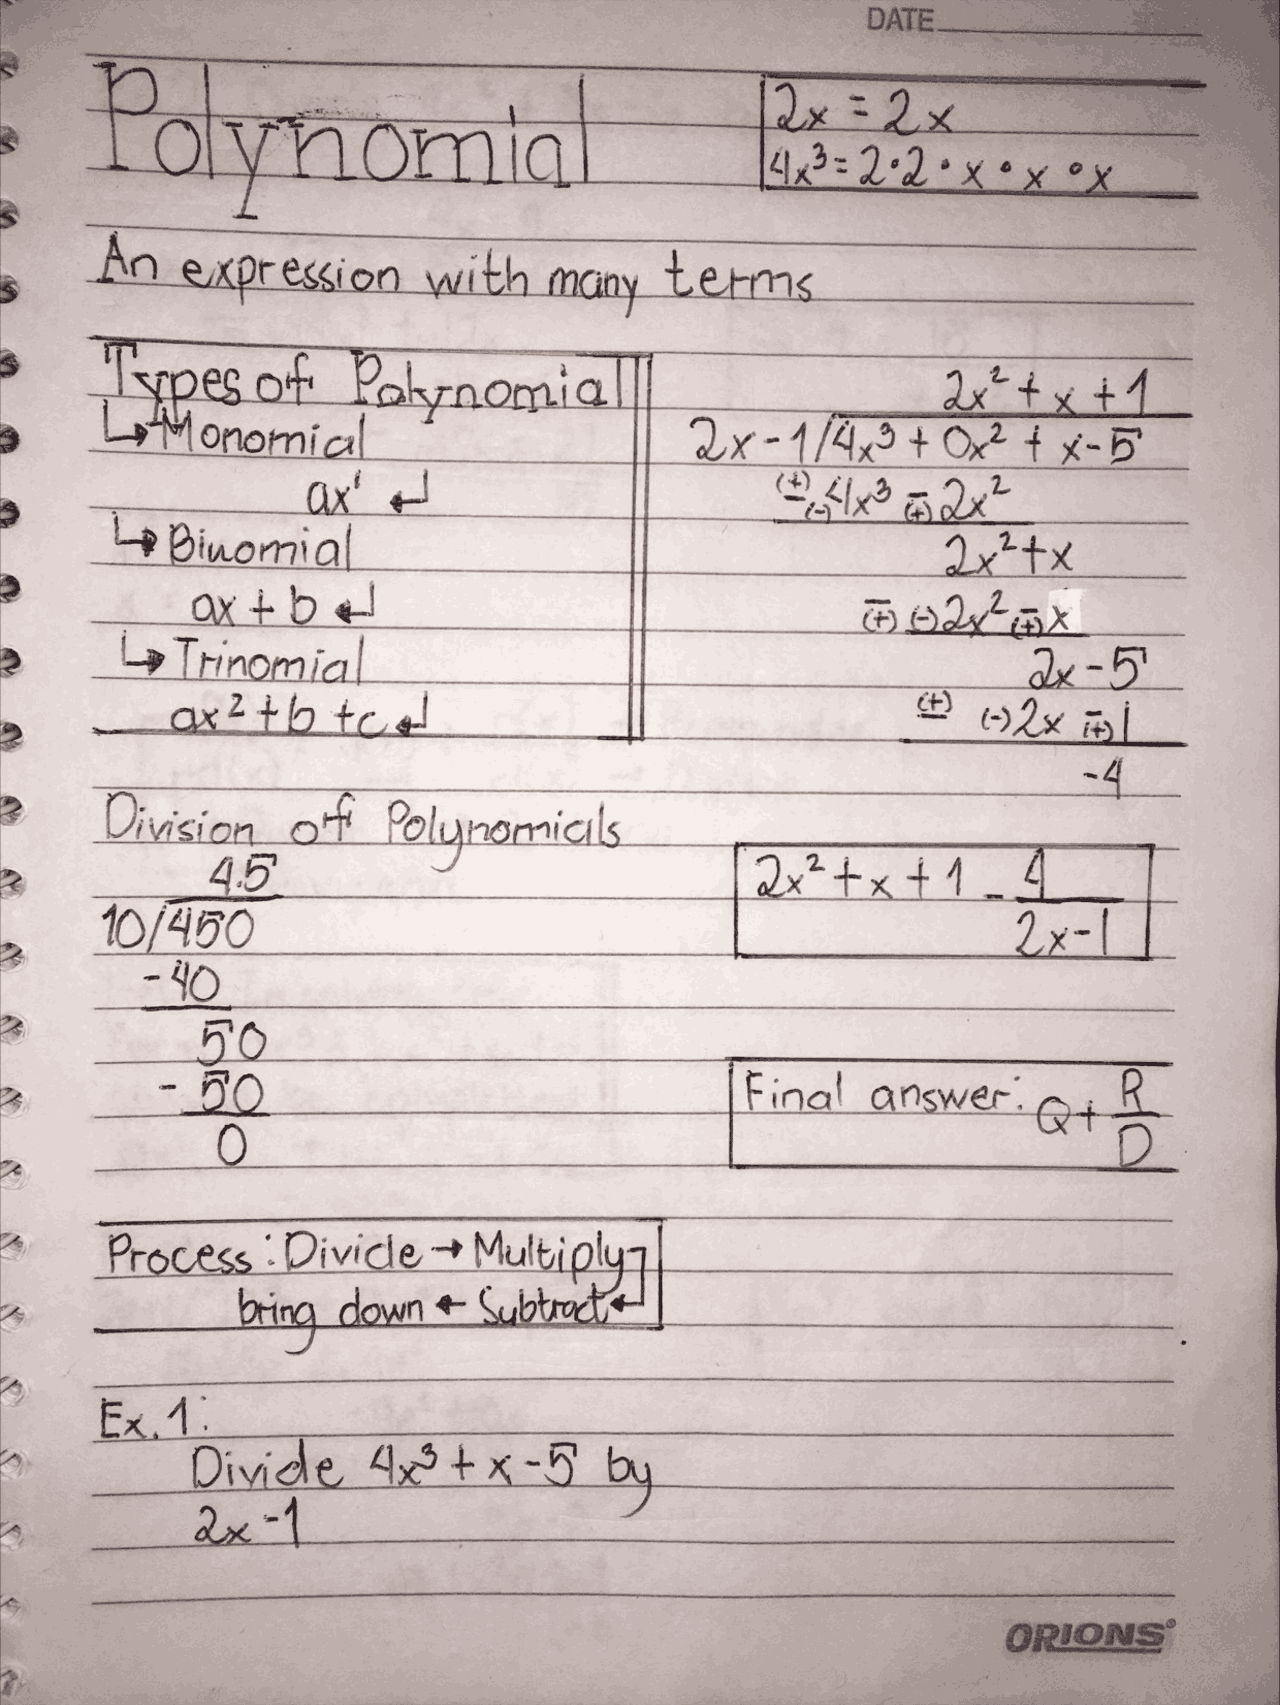 DATE
Polynomial
2x = 2x
4x³ = 2•2•x•x•x
An expression with many terms
Types of Polynomial
↳ Monomial
ax¹ ↵
↳ Binomial
ax + b ↵
↳ Trinomial
ax² + b + c ↵
2x² + x + 1
2x - 1/4x³ + 0x² + x - 5
(+) (-) 4x³ (+) 2x²
2x² + x
(+) (-) 2x² (+) x
2x - 5
(+) (-) 2x (+) 1
-4
2x² + x + 1 - 4
2x - 1
Final answer: Q + R
D
Division of Polynomials
4.5
10/450
- 40
50
- 50
0
Process: Divide → Multiply
bring down ← Subtract ↵
Ex. 1:
Divide 4x³ + x - 5 by
2x - 1
ORIONS